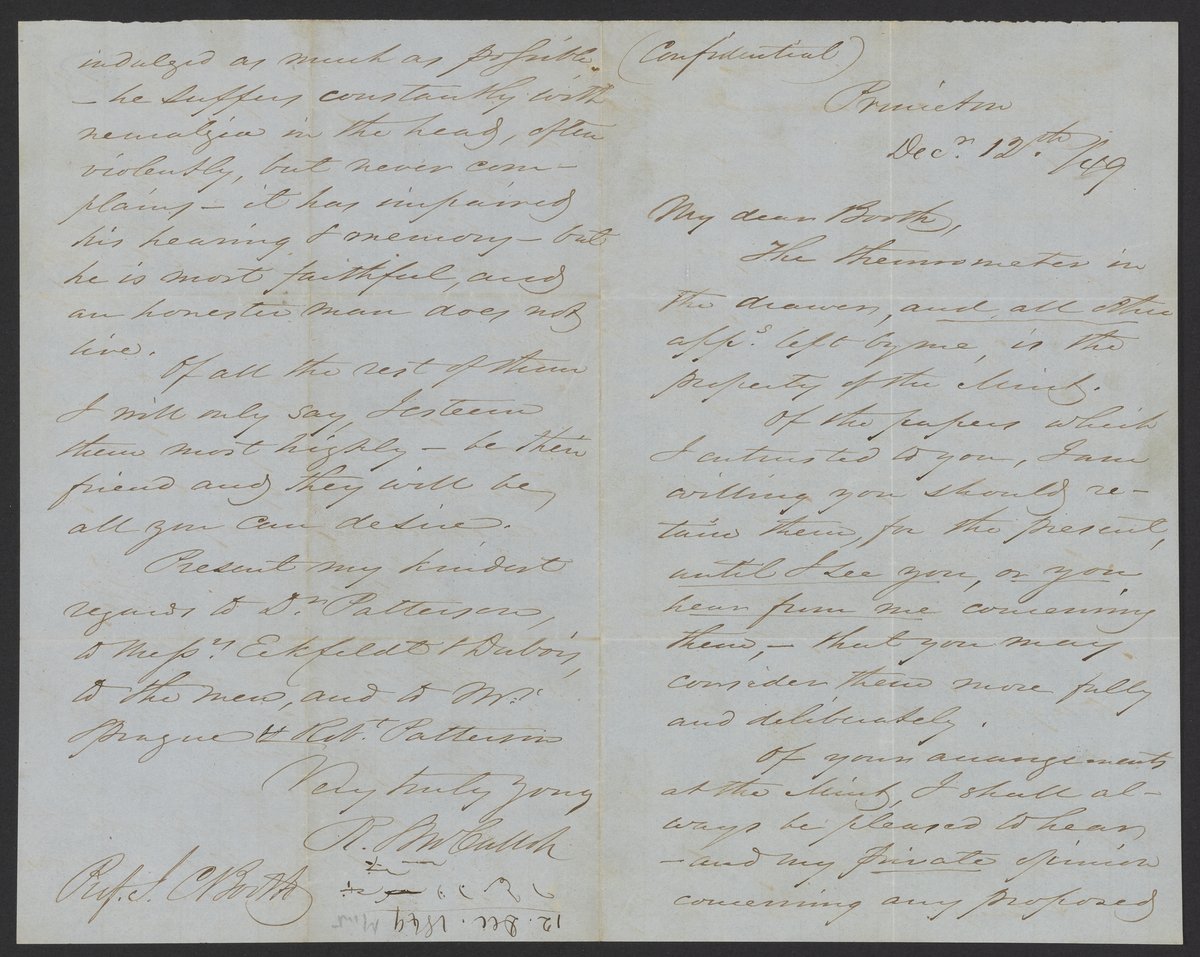 (Confidential)
Princeton
Decr. 12th. /49
My dear Booth,
The thermometer in
the drawer, and all other
apps. left by me, is the
property of the Mint.
Of the papers which
I entrusted to you, I am
willing you should re-
tain them, for the present,
until I see you, or you
hear from me concerning
them, - that you may
consider them more fully
and deliberately.
Of your arrangements
at the Mint, I shall al-
ways be pleased to hear,
- and my private opinion
concerning any proposed
indulged as much as possible.
- he suffers constantly with
neuralgia in the head, often
violently, but never com-
plains - it has impaired
his hearing & memory - but
he is most faithful, and
an honester man does not
live.
Of all the rest of them
I will only say, I esteem
them most highly - be their
friend and they will be,
all you can desire.
Present my kindest
regards to Dr. Patterson,
to Messrs. Eckfeldt & Dubois,
to the men, and to Mrs.
Sprague & Robt. Patterson
Very truly yours
R. S. McCulloh
Prof. J. C. Booth
12. Dec. 1849
Mint